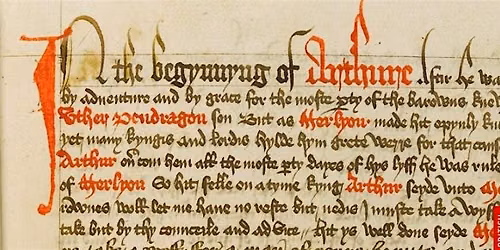 In the begynnyng of Arthure Aftir he wa
by adventure and by grace for the moste pty of the barowns kne
Uther Pendragon son But as Merlyon made hit opynly kn
yet many kyngis and lordis hylde hym grete werre for that caus
Arthur ou'com hem all the moste pty dayes of hys lyff he was rule
of Merlyon So hit felle on a tyme kyng Arthur seyde unto M
rowones woll let me have no reste but nedis I muste take a wyf
take but by thy counceile and advice hit ys well done seyde